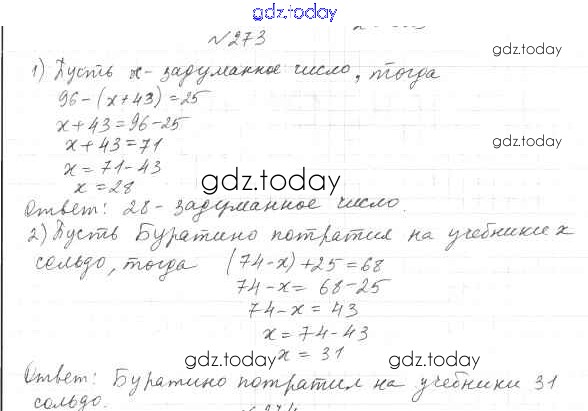 gdz.today
№273
gdz.today
1) Пусть x - задуманное число, тогда
96-(x+43)=25
x+43=96-25
gdz.today
x+43=71
x=71-43
x=28
gdz.today
Ответ: 28 - задуманное число.
2) Пусть Буратино потратил на учебники x
сольдо, тогда (74-x)+25=68
74-x= 68-25
74-x= 43
x=74-43
gdz.today
gdz.today
x= 31
Ответ: Буратино потратил на учебники 31
сольдо.